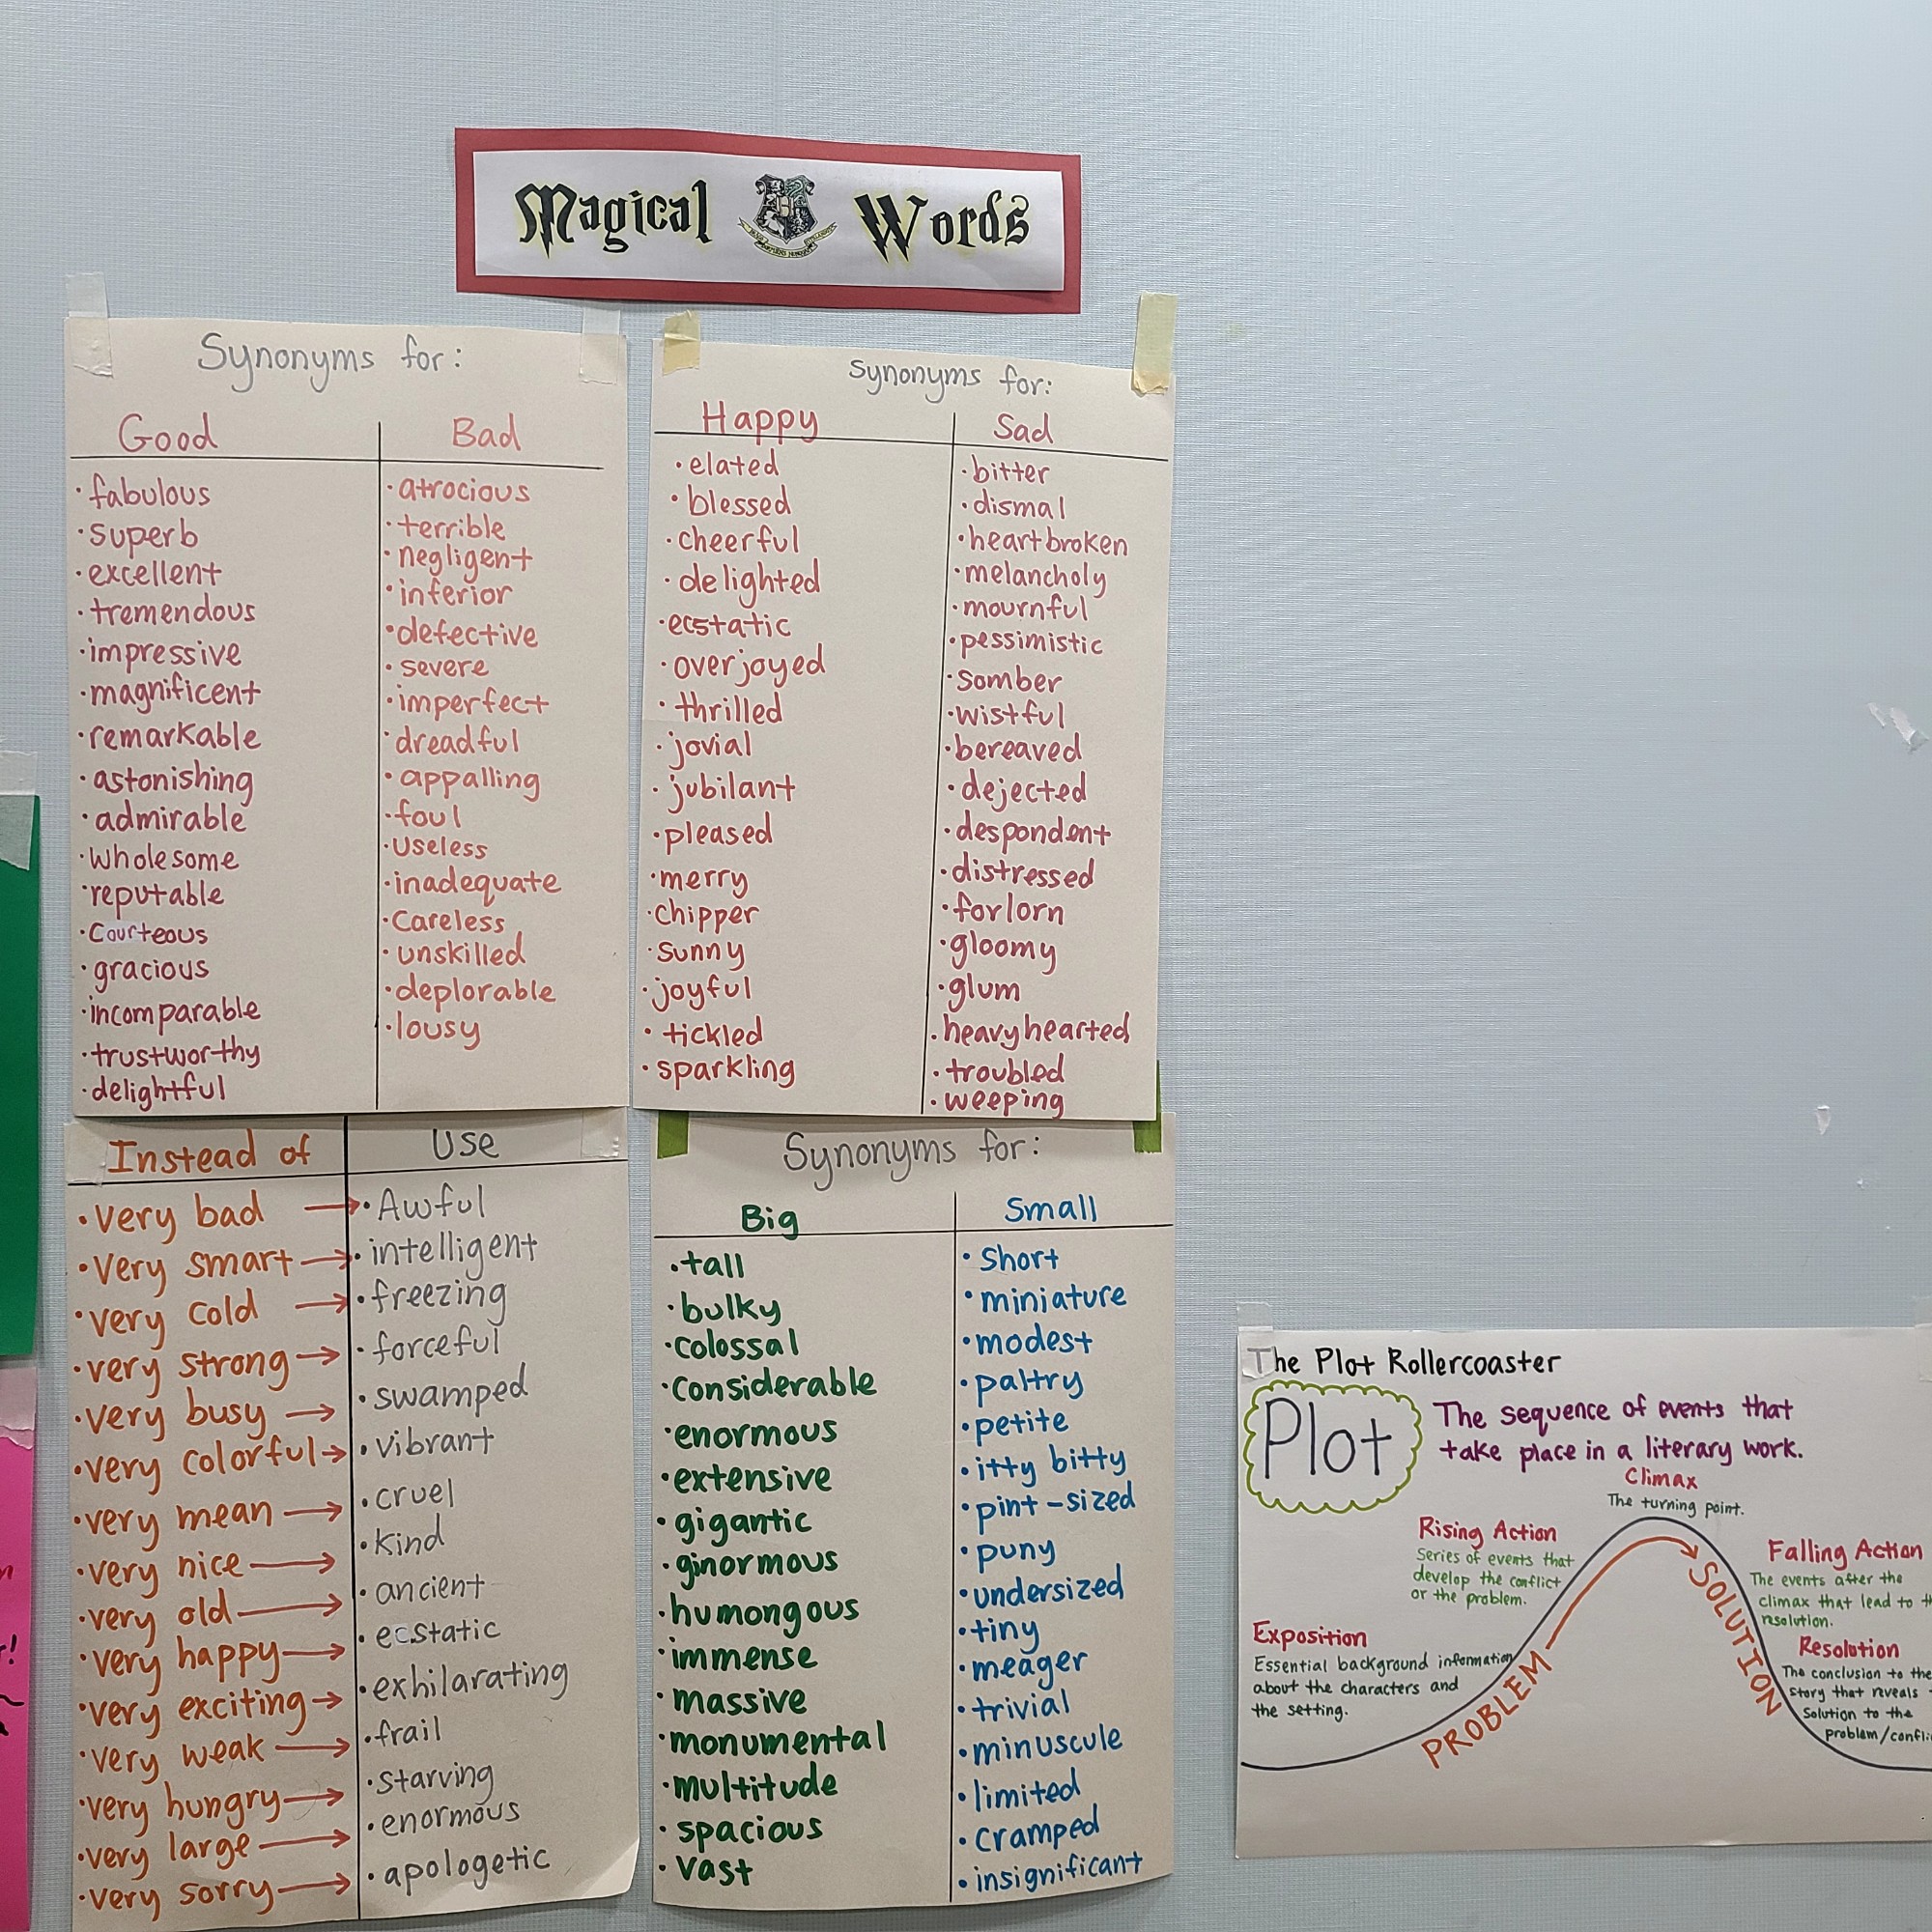 Magical Words
Synonyms for:
Good
· fabulous
· superb
· excellent
· tremendous
· impressive
· magnificent
· remarkable
· astonishing
· admirable
· wholesome
· reputable
· courteous
· gracious
· incomparable
· trustworthy
· delightful
Bad
· atrocious
· terrible
· negligent
· inferior
· defective
· severe
· imperfect
· dreadful
· appalling
· foul
· useless
· inadequate
· careless
· unskilled
· deplorable
· lousy
Synonyms for:
Happy
· elated
· blessed
· cheerful
· delighted
· ecstatic
· overjoyed
· thrilled
· jovial
· jubilant
· pleased
· merry
· chipper
· sunny
· joyful
· tickled
· sparkling
Sad
· bitter
· dismal
· heartbroken
· melancholy
· mournful
· pessimistic
· somber
· wistful
· bereaved
· dejected
· despondent
· distressed
· forlorn
· gloomy
· glum
· heavyhearted
· troubled
· weeping
Instead of Use
· very bad → · Awful
· very smart → · intelligent
· very cold → · freezing
· very strong → · forceful
· very busy → · swamped
· very colorful → · vibrant
· very mean → · cruel
· very nice → · kind
· very old → · ancient
· very happy → · ecstatic
· very exciting → · exhilarating
· very weak → · frail
· very hungry → · starving
· very large → · enormous
· very sorry → · apologetic
Synonyms for:
Big
· tall
· bulky
· colossal
· considerable
· enormous
· extensive
· gigantic
· ginormous
· humongous
· immense
· massive
· monumental
· multitude
· spacious
· vast
Small
· short
· miniature
· modest
· paltry
· petite
· itty bitty
· pint-sized
· puny
· undersized
· tiny
· meager
· trivial
· minuscule
· limited
· cramped
· insignificant
The Plot Rollercoaster
Plot
The sequence of events that
take place in a literary work.
Climax
The turning point.
Rising Action
Series of events that
develop the conflict
or the problem.
Exposition
Essential background information
about the characters and
the setting.
PROBLEM
SOLUTION
Falling Action
The events after the
climax that lead to
resolution.
Resolution
The conclusion to the
story that reveals
solution to the
problem/